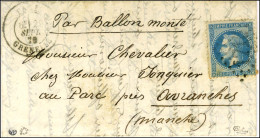 Par Ballon monté
Monsieur Chevalier
chez Monsieur Jonquier
au Parc près Avranches
(Manche)
SEPT